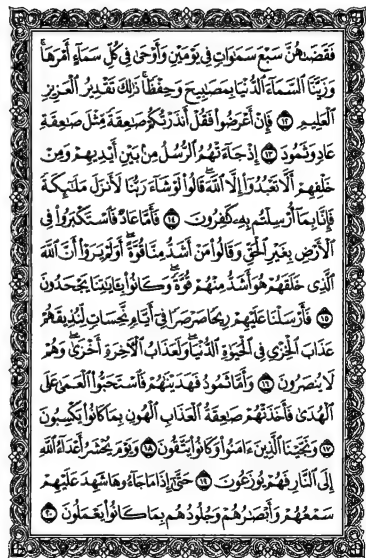 فَقَضَىٰهُنَّ سَبْعَ سَمَٰوَاتٍ فِي يَوْمَيْنِ وَأَوْحَىٰ فِي كُلِّ سَمَآءٍ أَمْرَهَا ۚ
وَزَيَّنَّا ٱلسَّمَآءَ ٱلدُّنْيَا بِمَصَٰبِيحَ وَحِفْظًا ۚ ذَٰلِكَ تَقْدِيرُ ٱلْعَزِيزِ
ٱلْعَلِيمِ ١٢ فَإِنْ أَعْرَضُوا۟ فَقُلْ أَنذَرْتُكُمْ صَٰعِقَةً مِّثْلَ صَٰعِقَةِ
عَادٍ وَثَمُودَ ١٣ إِذْ جَآءَتْهُمُ ٱلرُّسُلُ مِنۢ بَيْنِ أَيْدِيهِمْ وَمِنْ
خَلْفِهِمْ أَلَّا تَعْبُدُوٓا۟ إِلَّا ٱللَّهَ ۖ قَالُوا۟ لَوْ شَآءَ رَبُّنَا لَأَنزَلَ مَلَٰٓئِكَةً
فَإِنَّا بِمَآ أُرْسِلْتُم بِهِۦ كَٰفِرُونَ ١٤ فَأَمَّا عَادٌ فَٱسْتَكْبَرُوا۟ فِي
ٱلْأَرْضِ بِغَيْرِ ٱلْحَقِّ وَقَالُوا۟ مَنْ أَشَدُّ مِنَّا قُوَّةً ۖ أَوَلَمْ يَرَوْا۟ أَنَّ ٱللَّهَ
ٱلَّذِي خَلَقَهُمْ هُوَ أَشَدُّ مِنْهُمْ قُوَّةً ۖ وَكَانُوا۟ بِـَٔايَٰتِنَا يَجْحَدُونَ
١٥ فَأَرْسَلْنَا عَلَيْهِمْ رِيحًا صَرْصَرًا فِيٓ أَيَّامٍ نَّحِسَاتٍ لِّنُذِيقَهُمْ
عَذَابَ ٱلْخِزْيِ فِي ٱلْحَيَوٰةِ ٱلدُّنْيَا ۖ وَلَعَذَابُ ٱلْـَٔاخِرَةِ أَخْزَىٰ ۖ وَهُمْ
لَا يُنصَرُونَ ١٦ وَأَمَّا ثَمُودُ فَهَدَيْنَٰهُمْ فَٱسْتَحَبُّوا۟ ٱلْعَمَىٰ عَلَى
ٱلْهُدَىٰ فَأَخَذَتْهُمْ صَٰعِقَةُ ٱلْعَذَابِ ٱلْهُونِ بِمَا كَانُوا۟ يَكْسِبُونَ
١٧ وَنَجَّيْنَا ٱلَّذِينَ ءَامَنُوا۟ وَكَانُوا۟ يَتَّقُونَ ١٨ وَيَوْمَ يُحْشَرُ أَعْدَآءُ ٱللَّهِ
إِلَى ٱلنَّارِ فَهُمْ يُوزَعُونَ ١٩ حَتَّىٰٓ إِذَا مَا جَآءُوهَا شَهِدَ عَلَيْهِمْ
سَمْعُهُمْ وَأَبْصَٰرُهُمْ وَجُلُودُهُم بِمَا كَانُوا۟ يَعْمَلُونَ ٢٠